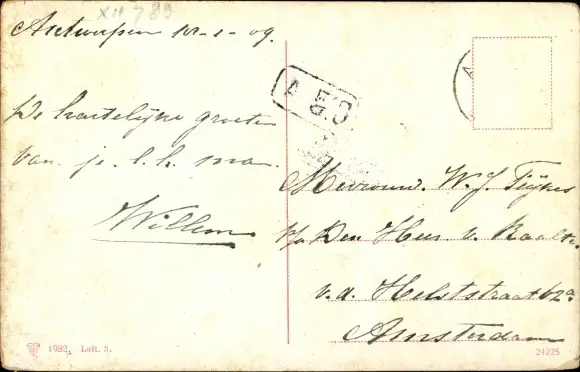 XII 789
Antwerpen 12-1-09.
De hartelijke groeten
van je l.h. man.
Willem
Mevrouw. W. J. Feijnes
p/a Den Heer v. Raalte.
v.d. Helststraat 62a
Amsterdam
1982, Lalt. 3.
24225